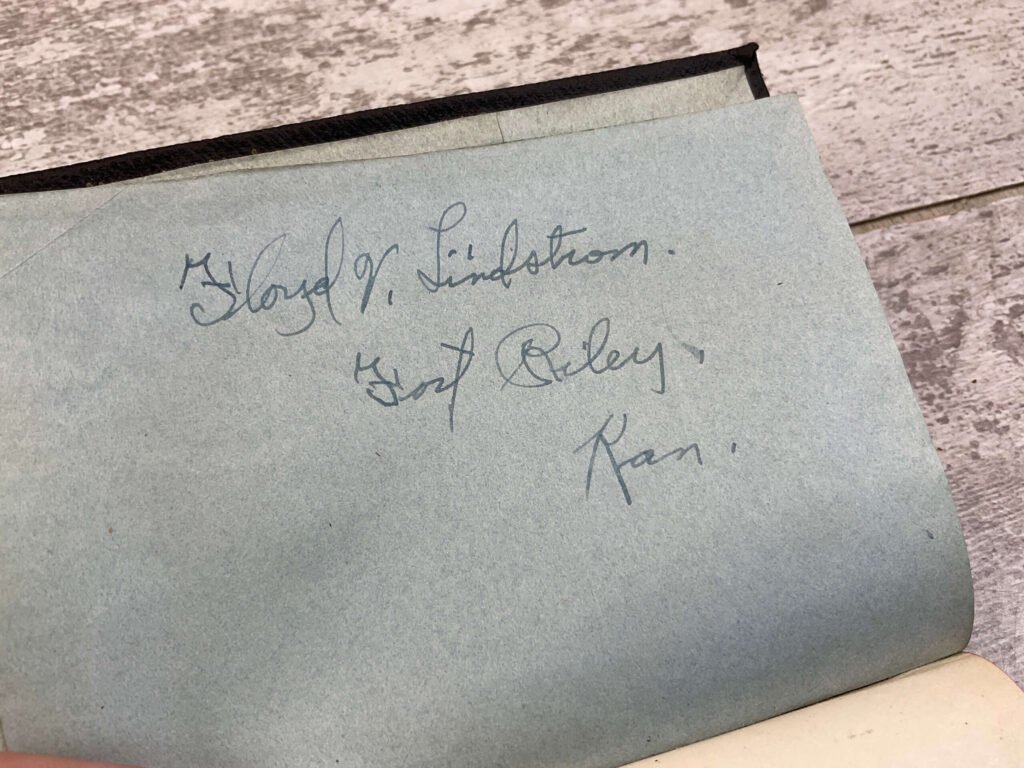 Floyd V, Lindstrom.
Fort Riley,
Kan.